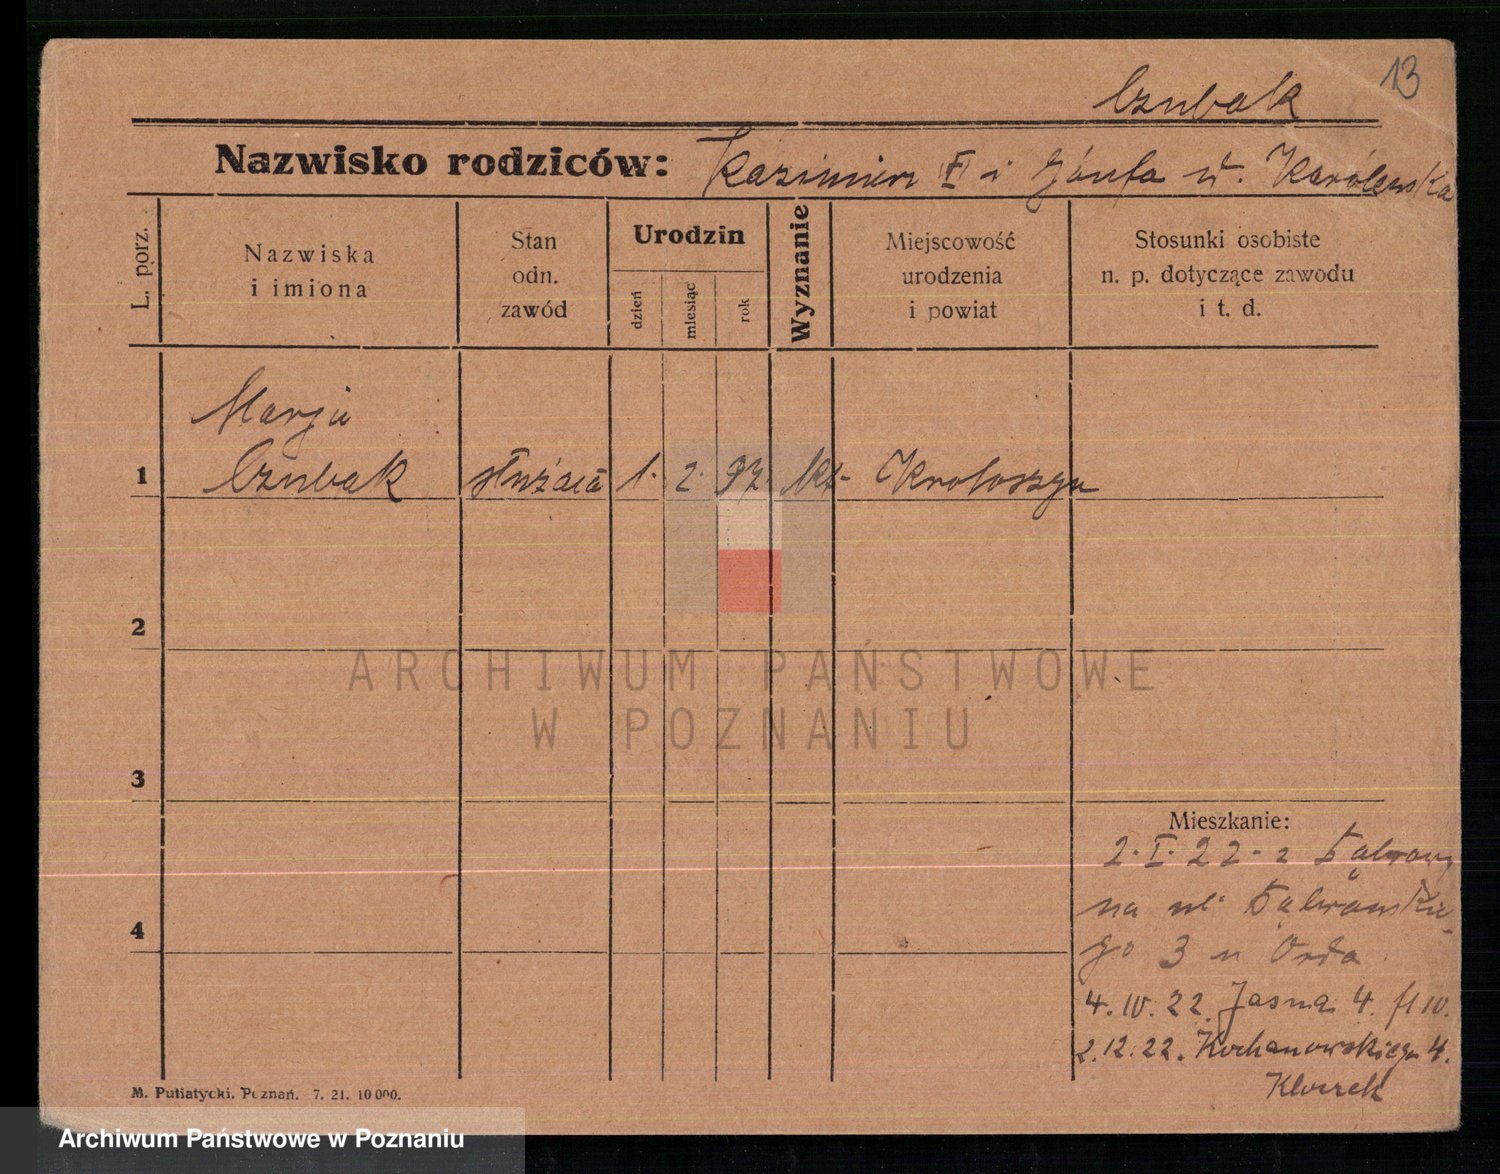 13
Czubak
Nazwisko rodziców: Kazimierz i Józefa u. Karolewska
L. porz.
Nazwiska
i imiona
Stan
odn.
zawód
Urodzin
dzień
miesiąc
rok
Wyznanie
Miejscowość
urodzenia
i powiat
Stosunki osobiste
n. p. dotyczące zawodu
i t. d.
Marja
1 Czubak służąca 1. 2. 97. kt. Krotoszyn
2
3
4
Mieszkanie:
2. I. 22 z
na ul.
go 3 u Orła
4. IV. 22. Jasna 4.
2.12.22. Kochanowskiego 4.
M. Putiatycki. Poznań. 7. 21. 10 000.
ARCHIWUM PAŃSTWOWE
W POZNANIU
Archiwum Państwowe w Poznaniu